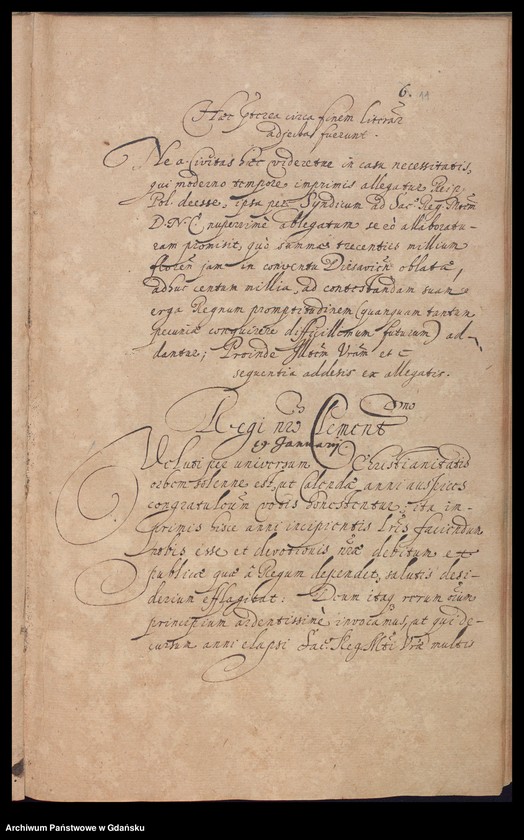 6. 11
Hæc pterea circa finem literar
adjecta fuerunt.
Ne a Civitas hæc videretur in casu necessitatis,
qui moderno tempore imprimis allegatur Reip.
Pol. deesse, ipsa per Syndicum ad Sac. Reg. Mtem
D. N. C nuperrime ablegatum se eò allaboratu-
ram promisit, quò summæ trecenties millium
floren jam in conventu oblatæ,
adhuc centum millia, ad contestandam suam
erga Regnum promptitudinem (quanquam tantum
pecuniæ conquirere difficillimum futurum) ad-
dantur; Proinde Illtem Vram et c
sequentia addetis ex allegatis.
Regi nro Clement Dno
19 Januarij
Veluti per universum Christianitatis
orbem solenne est, ut Calendæ anni auspices
congratuloum votis honestentur, ita im-
primis hisce anni incipientis faciendum
nobis esse et devotionis nræ debitum et
publicæ quæ à Regum dependet, salutis desi-
derium efflagitat: Deum itaq rerum oium
principium ardentissimè invocamus, ut qui de-
cursum anni elapsi Sac. Reg. Mti Vræ multis
Archiwum Państwowe w Gdańsku